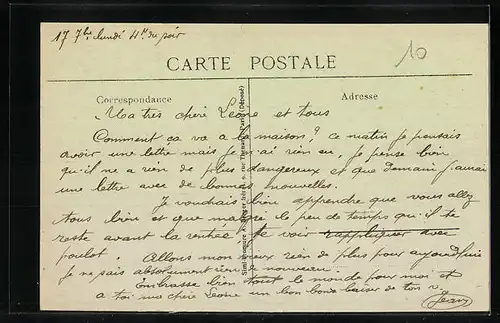 17 7bre lundi 4h du soir
10
CARTE POSTALE
Correspondance
Adresse
Ma très chère Léone et tous
Comment ça va à la maison? ce matin je pensais
avoir une lettre mais je n'ai rien eu, je pense bien
qu'il ne a rien de plus dangereux et que demain j'aurai
une lettre avec de bonnes nouvelles.
Je voudrais bien apprendre que vous allez
tous bien et que malgré le peu de temps qu'il te
reste avant la rentrée te voir rappliquer avec
poulot. Allons mon vieux rien de plus pour aujourd'hui
je ne sais absolument rien de nouveau.
Embrasse bien tout le monde pour moi et
a toi ma chère Léone un bon baiser de ton
Jean